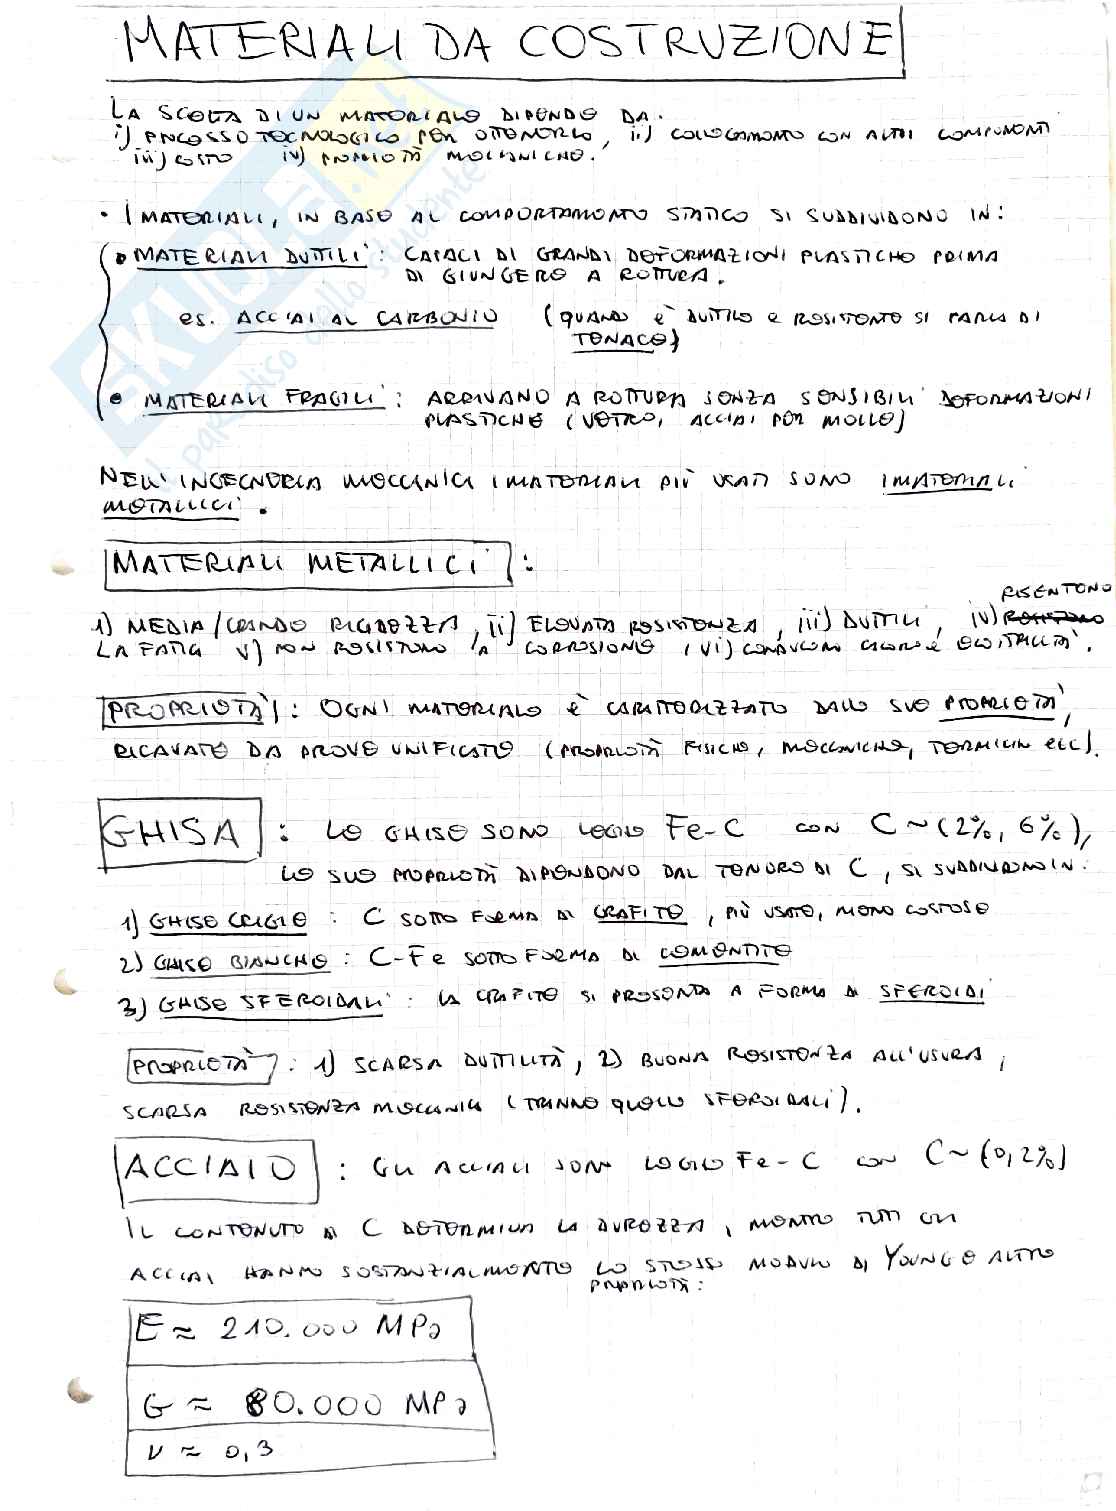 MATERIALI DA COSTRUZIONE
LA SCELTA DI UN MATERIALE DIPENDE DA:
i) PROCESSO TECNOLOGICO PER OTTENERLO, ii) COLLEGAMENTO CON ALTRI COMPONENTI
iii) COSTO iv) PROPRIETÀ MECCANICHE.
• I MATERIALI, IN BASE AL COMPORTAMENTO STATICO SI SUDDIVIDONO IN:
• MATERIALI DUTTILI: CAPACI DI GRANDI DEFORMAZIONI PLASTICHE PRIMA
DI GIUNGERE A ROTTURA.
es. ACCIAI AL CARBONIO (QUANDO È DUTTILE E RESISTENTE SI PARLA DI
TENACE)
• MATERIALI FRAGILI: ARRIVANO A ROTTURA SENZA SENSIBILI DEFORMAZIONI
PLASTICHE (VETRO, ACCIAI PER MOLLE)
NELL'INGEGNERIA MECCANICA I MATERIALI PIÙ USATI SONO I MATERIALI
METALLICI.
MATERIALI METALLICI:
RISENTONO
1) MEDIA/GRANDE RIGIDEZZA, ii) ELEVATA RESISTENZA, iii) DUTTILI, iv)
LA FATICA v) NON RESISTONO A CORROSIONE, vi) CONDUCONO CALORE E ELETTRICITÀ.
PROPRIETÀ: OGNI MATERIALE È CARATTERIZZATO DALLE SUE PROPRIETÀ,
RICAVATE DA PROVE UNIFICATE (PROPRIETÀ FISICHE, MECCANICHE, TERMICHE ecc).
GHISA: LE GHISE SONO LEGHE Fe-C CON C~(2%, 6%),
LE SUE PROPRIETÀ DIPENDONO DAL TENORE DI C, SI SUDDIVIDONO IN:
1) GHISE GRIGIE: C SOTTO FORMA DI GRAFITE, PIÙ USATE, MENO COSTOSE
2) GHISE BIANCHE: C-Fe SOTTO FORMA DI CEMENTITE
3) GHISE SFEROIDALI: LA GRAFITE SI PRESENTA A FORMA DI SFEROIDI
PROPRIETÀ: 1) SCARSA DUTTILITÀ, 2) BUONA RESISTENZA ALL'USURA,
SCARSA RESISTENZA MECCANICA (TRANNE QUELLE SFEROIDALI).
ACCIAIO: GLI ACCIAI SONO LEGHE Fe-C CON C~(0,2%)
IL CONTENUTO DI C DETERMINA LA DUREZZA, MENTRE TUTTI GLI
ACCIAI HANNO SOSTANZIALMENTE LO STESSO MODULO DI YOUNG E ALTRE
PROPRIETÀ:
E ≈ 210.000 MPa
G ≈ 80.000 MPa
ν ≈ 0,3
SKUOLA.net
il paradiso dello studente